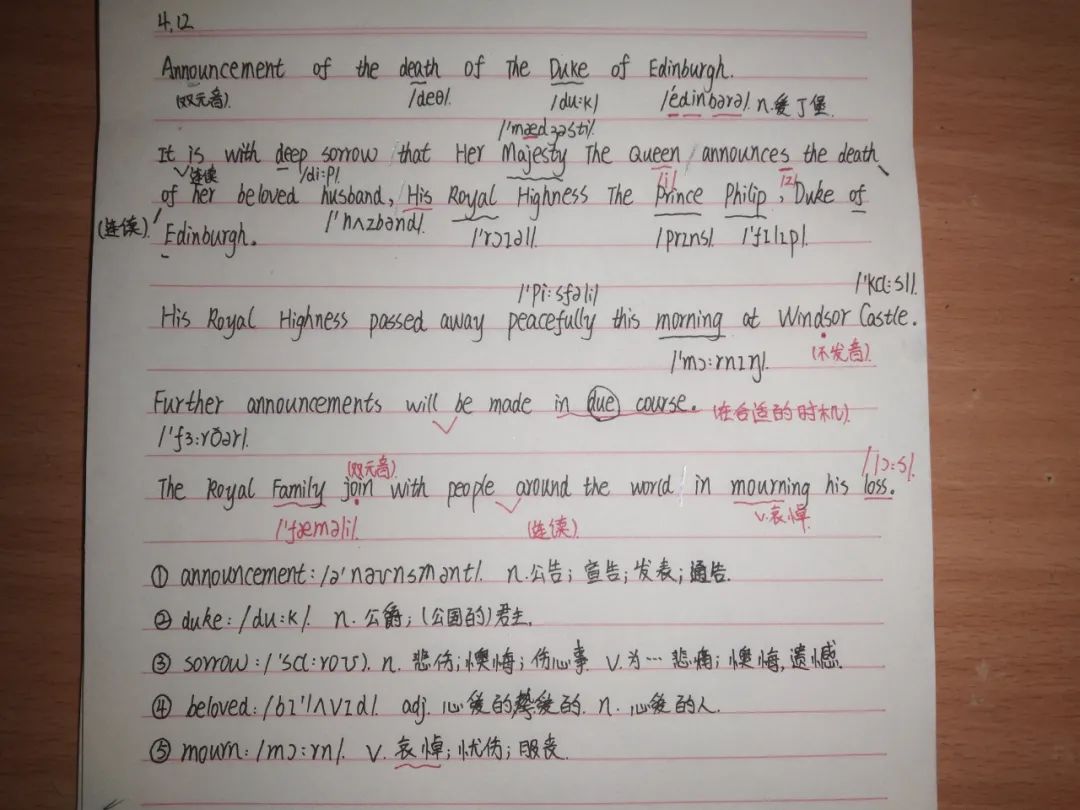 4.12
Announcement of the death of The Duke of Edinburgh.
(双元音). /deθ/. /du:k/ /édinbərə/ n.爱丁堡.
/'mædʒəsti/.
It is with deep sorrow that Her Majesty The Queen announces the death
连续 /di:p/. /i/ /z/
of her beloved husband, His Royal Highness The Prince Philip, Duke of
(连读). /'hʌzbənd/. /'rɔɪəl/. /prɪns/. /'fɪlɪp/.
Edinburgh.
/'pi:sfəli/ /'kɑ:sl/.
His Royal Highness passed away peacefully this morning at Windsor Castle.
/'mɔ:rnɪŋ/. (不发音).
Further announcements will be made in due course. (在合适的时机).
/'fɜ:rðər/.
(双元音). /lɔ:s/.
The Royal Family join with people around the world in mourning his loss.
/'fæməli/. (连读). v.哀悼.
① announcement: /ə'naʊnsmənt/. n.公告; 宣告; 发表; 通告.
② duke: /du:k/. n. 公爵; (公国的)君主.
③ sorrow: /'sɑ:roʊ). n. 悲伤; 懊悔; 伤心事. v. 为…悲痛; 懊悔, 遗憾.
④ beloved: /bɪ'lʌvɪd/. adj. 心爱的 挚爱的. n. 心爱的人.
⑤ mourn: /mɔ:rn/. v. 哀悼; 忧伤; 服丧.